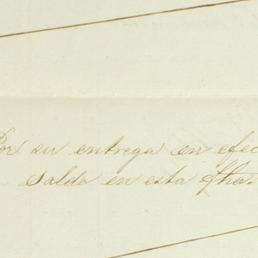 Por su entrega en efec
saldo en esta fha.